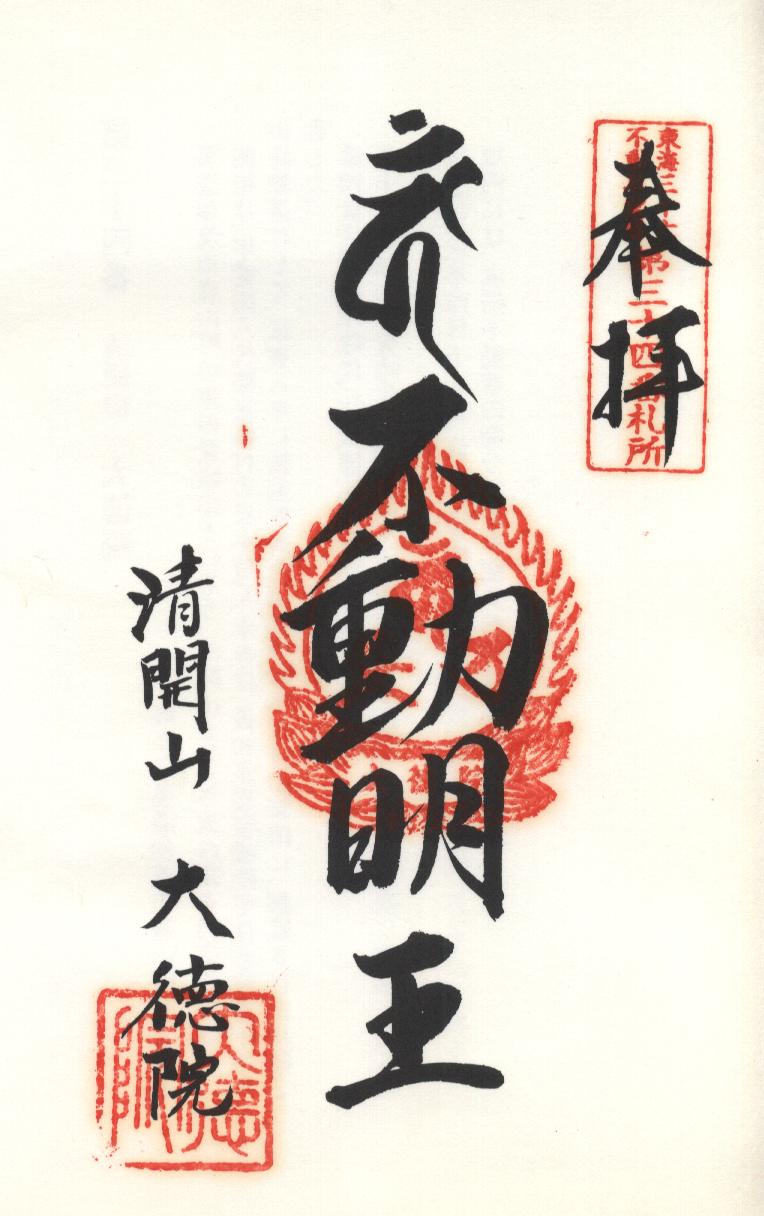 奉拝
東海三十六
不動尊第三十四番札所
不動明王
清開山 大徳院
大徳院